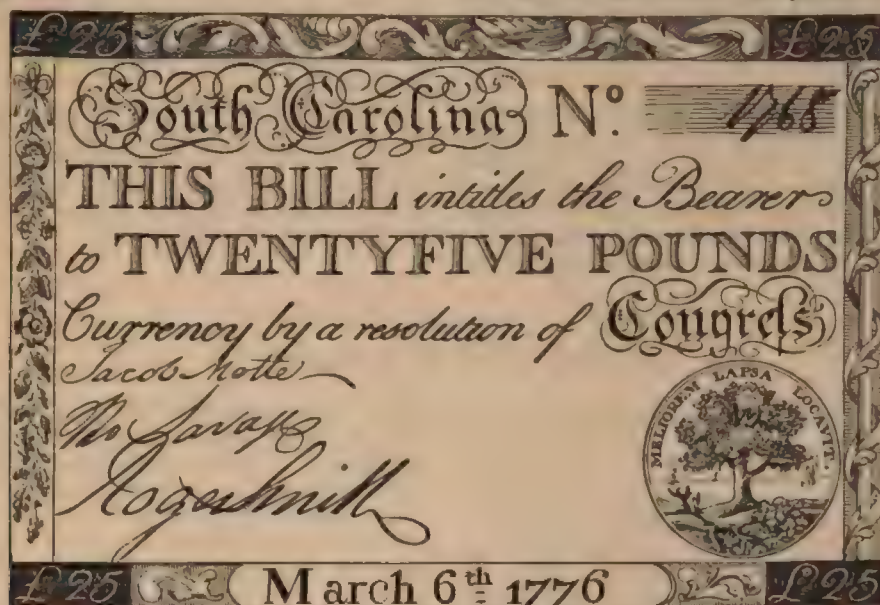 £25 £25
South Carolina Nº. 1768
THIS BILL intitles the Bearer
to TWENTYFIVE POUNDS
Currency by a resolution of Congreſs
Jacob Motte
Tho Savage
Roger Smith
MELIOREM LAPSA LOCAVIT.
£25 March 6th 1776 £25